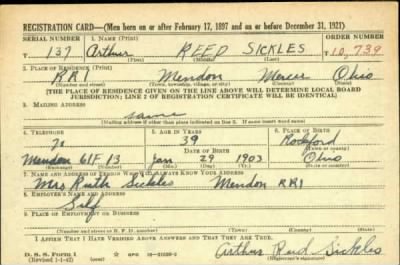 REGISTRATION CARD—(Men born on or after February 17, 1897 and on or before December 31, 1921)
SERIAL NUMBER 1. NAME (Print) ORDER NUMBER
T 137 Arthur REED SICKLES T 10,739
(First) (Middle) (Last)
2. PLACE OF RESIDENCE (Print)
RR1 Mendon Mercer Ohio
(Number and street) (Town, township, village, or city) (County) (State)
[THE PLACE OF RESIDENCE GIVEN ON THE LINE ABOVE WILL DETERMINE LOCAL BOARD
JURISDICTION; LINE 2 OF REGISTRATION CERTIFICATE WILL BE IDENTICAL]
3. MAILING ADDRESS
Same
[Mailing address if other than place indicated on line 2. If same insert word same]
4. TELEPHONE 5. AGE IN YEARS 6. PLACE OF BIRTH
39 Rockford
DATE OF BIRTH (Town or county)
Mendon 61F 13 Jan 29 1903 Ohio
(Exchange) (Number) (Mo.) (Day) (Yr.) (State or country)
7. NAME AND ADDRESS OF PERSON WHO WILL ALWAYS KNOW YOUR ADDRESS
Mrs Ruth Sickles Mendon RR1
8. EMPLOYER'S NAME AND ADDRESS
Self
9. PLACE OF EMPLOYMENT OR BUSINESS
(Number and street or R. F. D. number) (Town) (County) (State)
I AFFIRM THAT I HAVE VERIFIED ABOVE ANSWERS AND THAT THEY ARE TRUE.
D. S. S. Form 1
(Revised 1-1-42) GPO Arthur Reed Sickles
(Registrant's signature)